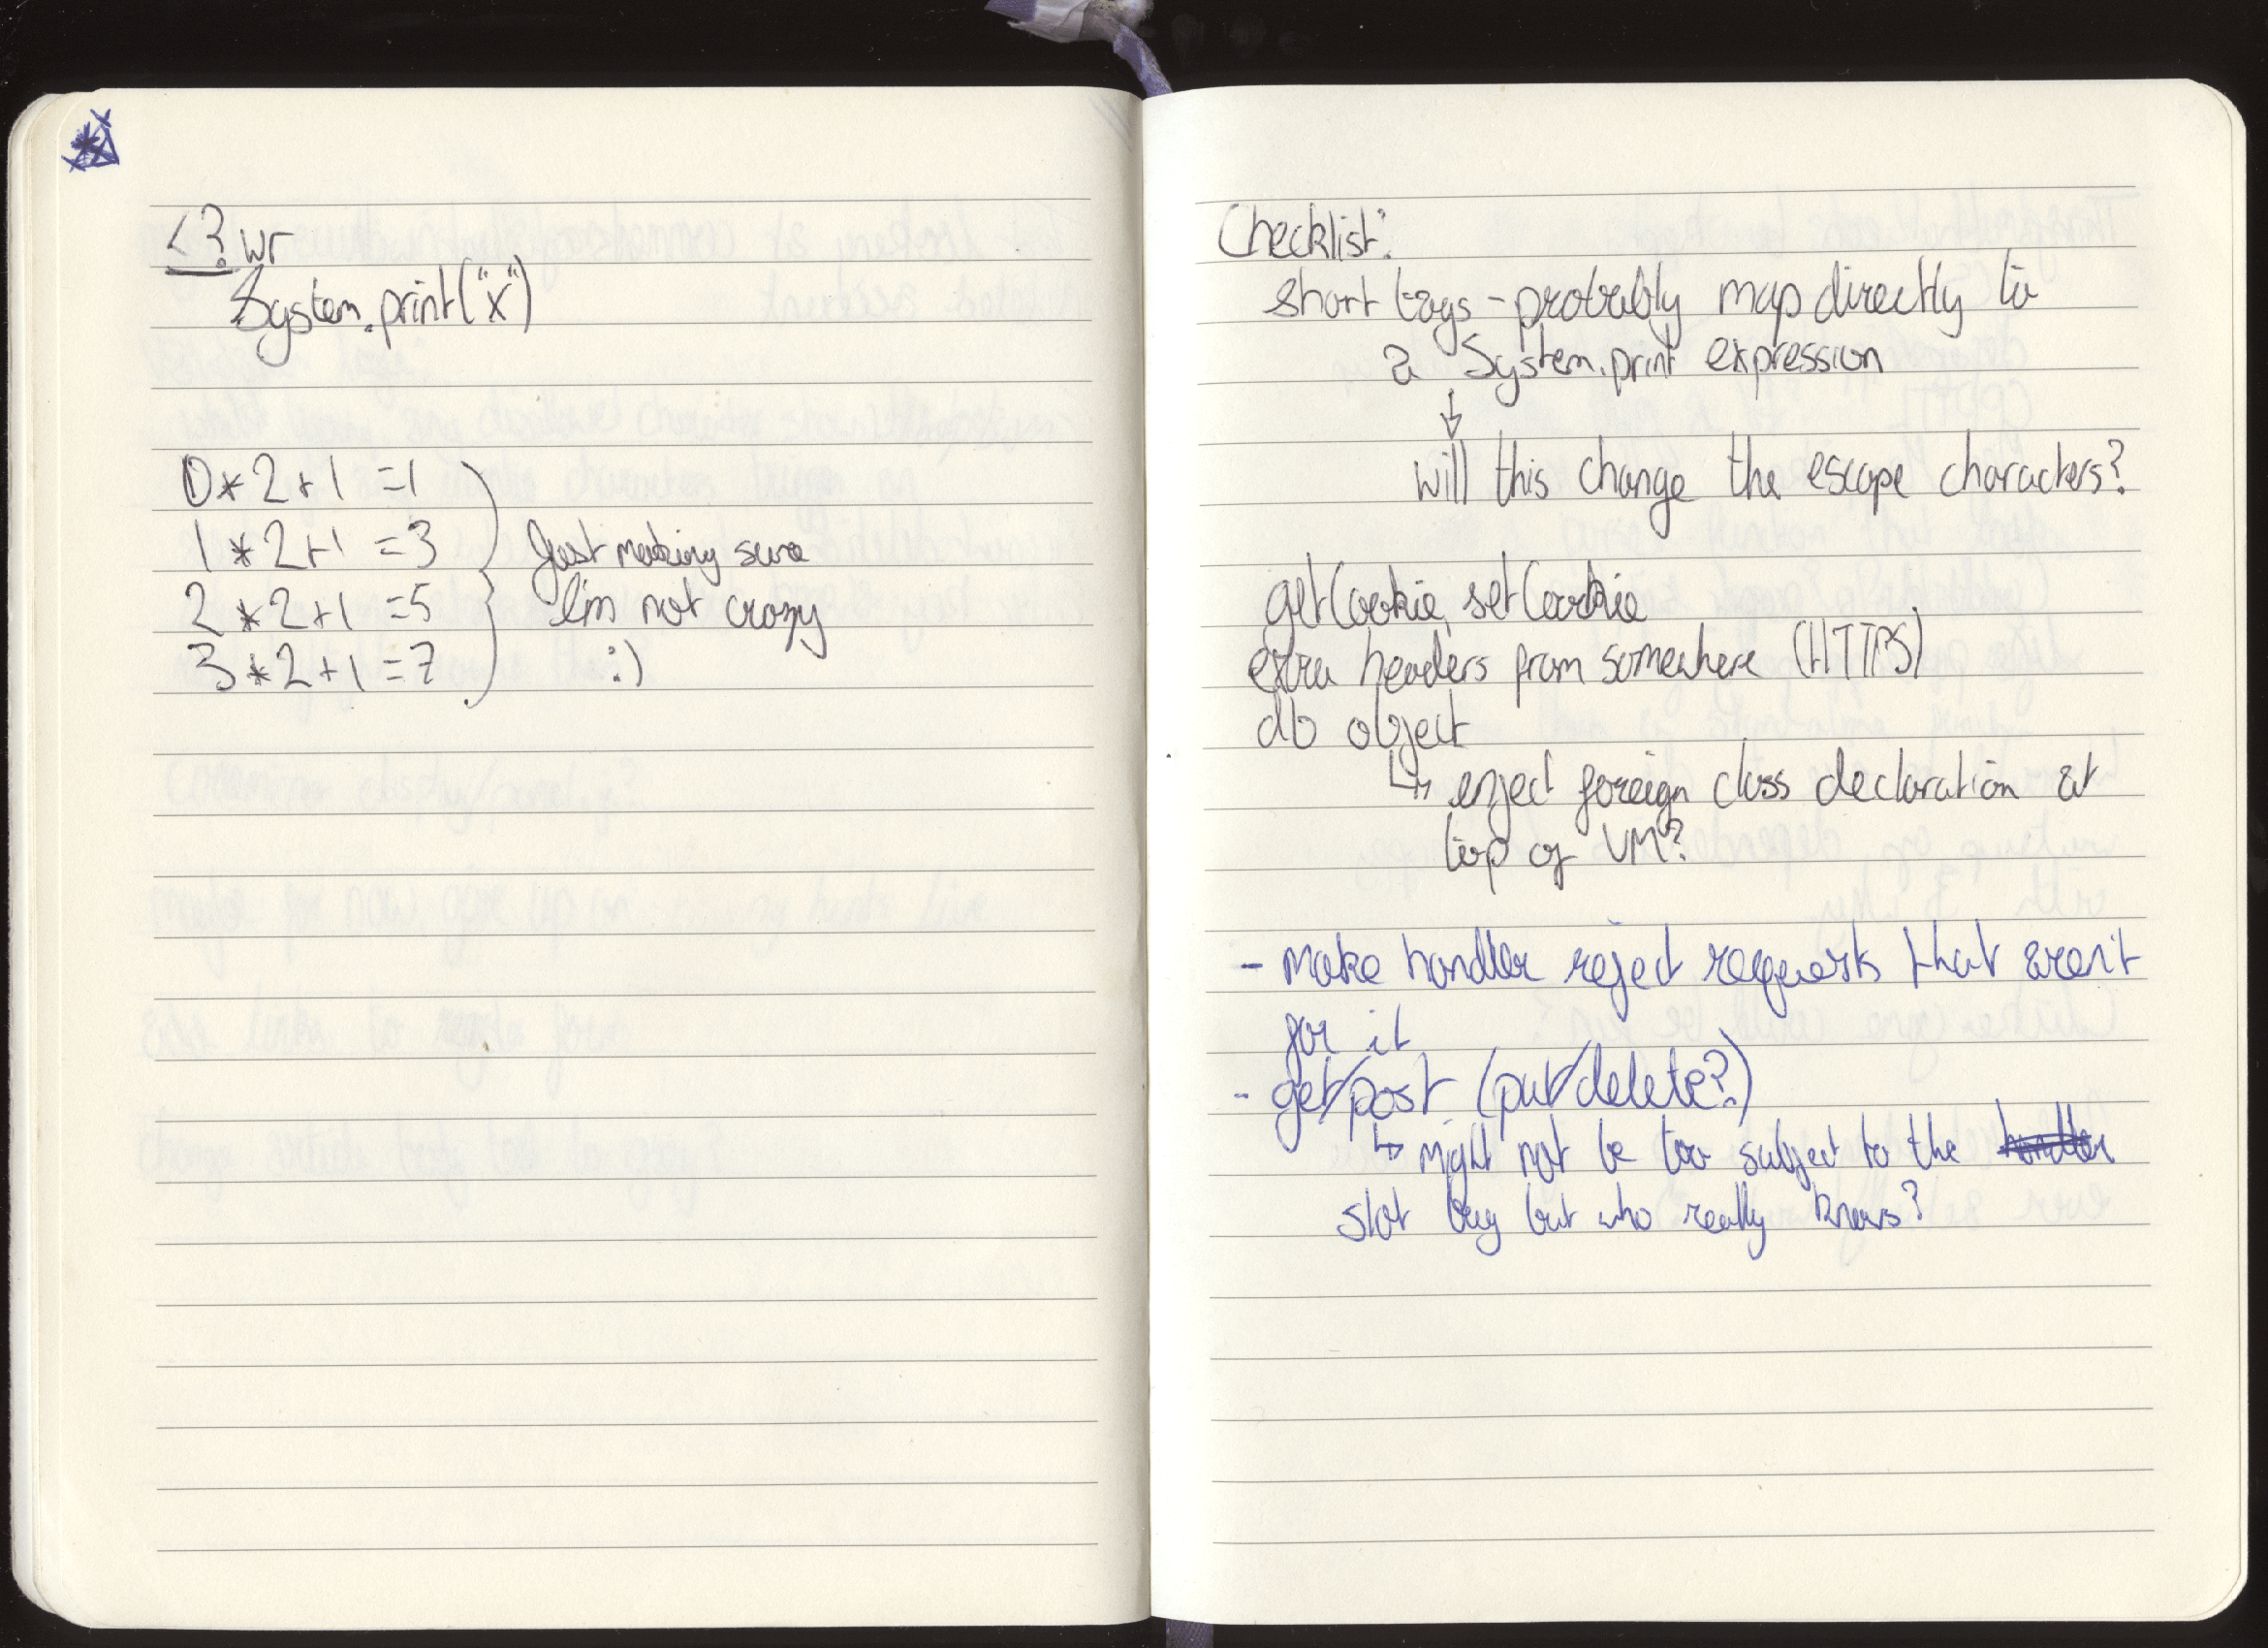 <? wr
System.print("x")
0*2+1 =1
1*2+1 =3
2*2+1 =5
3*2+1 =7
Just making sure
I'm not crazy
:)
Checklist:
short tags - probably map directly to
a System.print expression
↓
will this change the escape characters?
getCookie, setCookie
extra headers from somewhere (HTTPS)
db object
↳ inject foreign class declaration at
top of VM?
- make handler reject requests that aren't
for it
- get/post (put/delete?)
↳ might not be too subject to the handler
slot bug but who really knows?